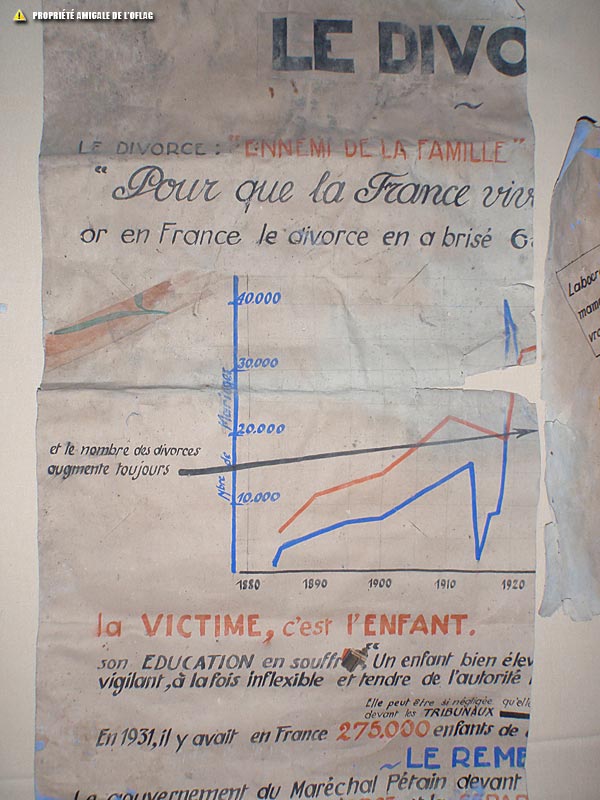 PROPRIÉTÉ AMICALE DE L'OFLAG
LE DIVO
LE DIVORCE : "ENNEMI DE LA FAMILLE"
"Pour que la France viv
or en France le divorce en a brisé 6
40.000
30.000
20.000
10.000
Nbre de Mariages
et le nombre des divorces
augmente toujours
1880 1890 1900 1910 1920
la VICTIME, c'est l'ENFANT.
son EDUCATION en souffr "Un enfant bien élev
vigilant, à la fois inflexible et tendre de l'autorité
Elle peut être si négligée qu'elle
devant les TRIBUNAUX
En 1931, il y avait en France 275.000 enfants de
~LE REME
Le gouvernement du Maréchal Pétain devant
Labour
mam
vra